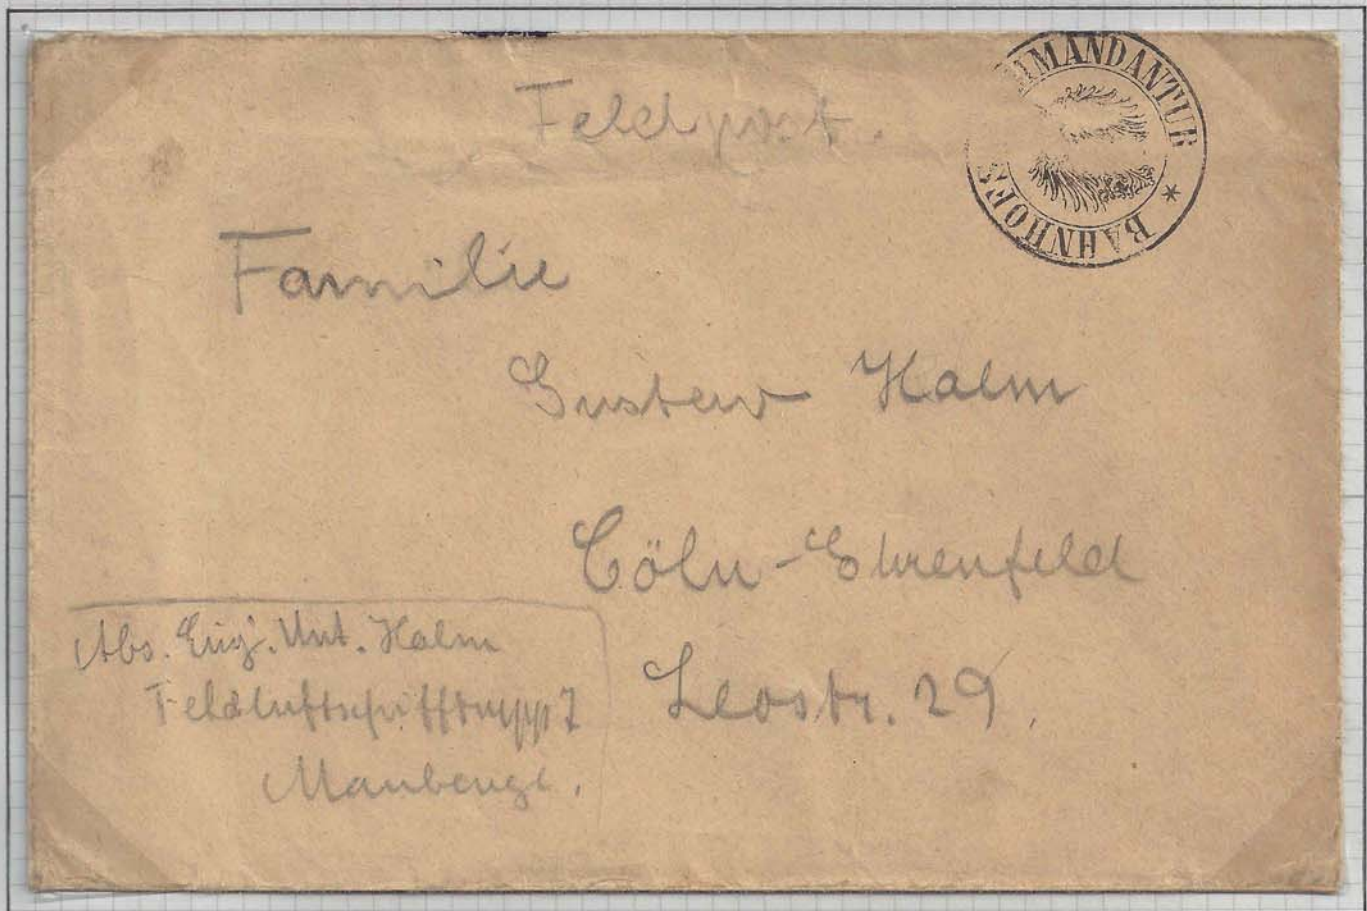 Feldpost.
MMANDANTUR * BAHNHOFS
Familie
Gustav Halm
Cöln-Ehrenfeld
Leostr. 29.
Abs. Unt. Halm
Feldluftschifftrupp 7
Maubeuge.